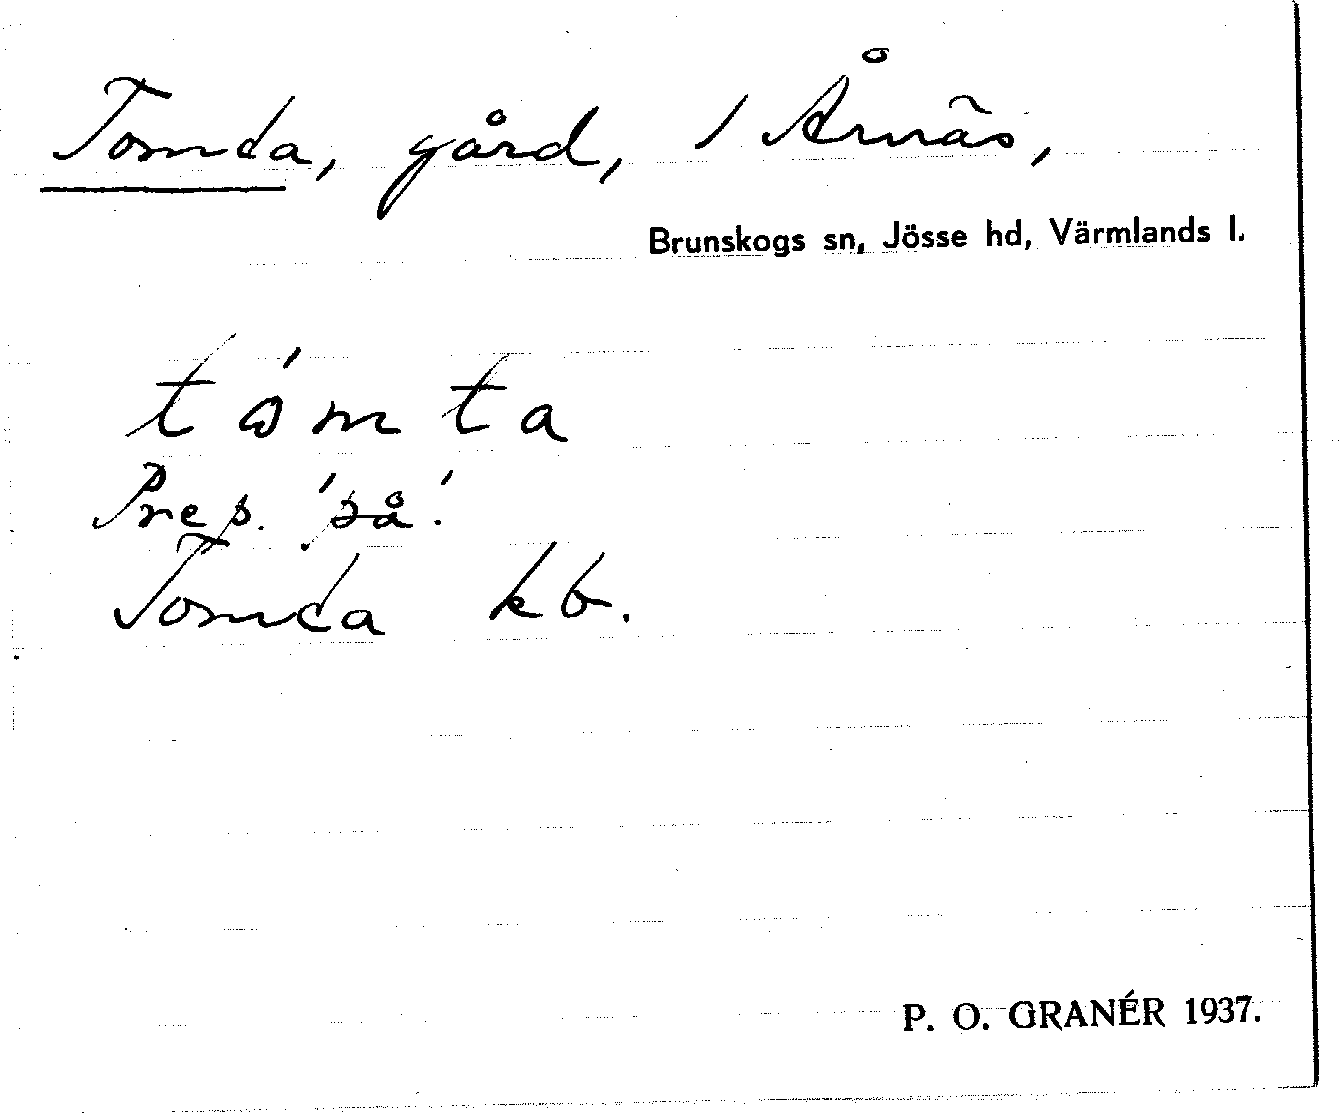 Tomda, gård, / Årnäs,
Brunskogs sn, Jösse hd, Värmlands l.
tómta
Prep. 'på'.
Tomda kb.
P. O. GRANÉR 1937.